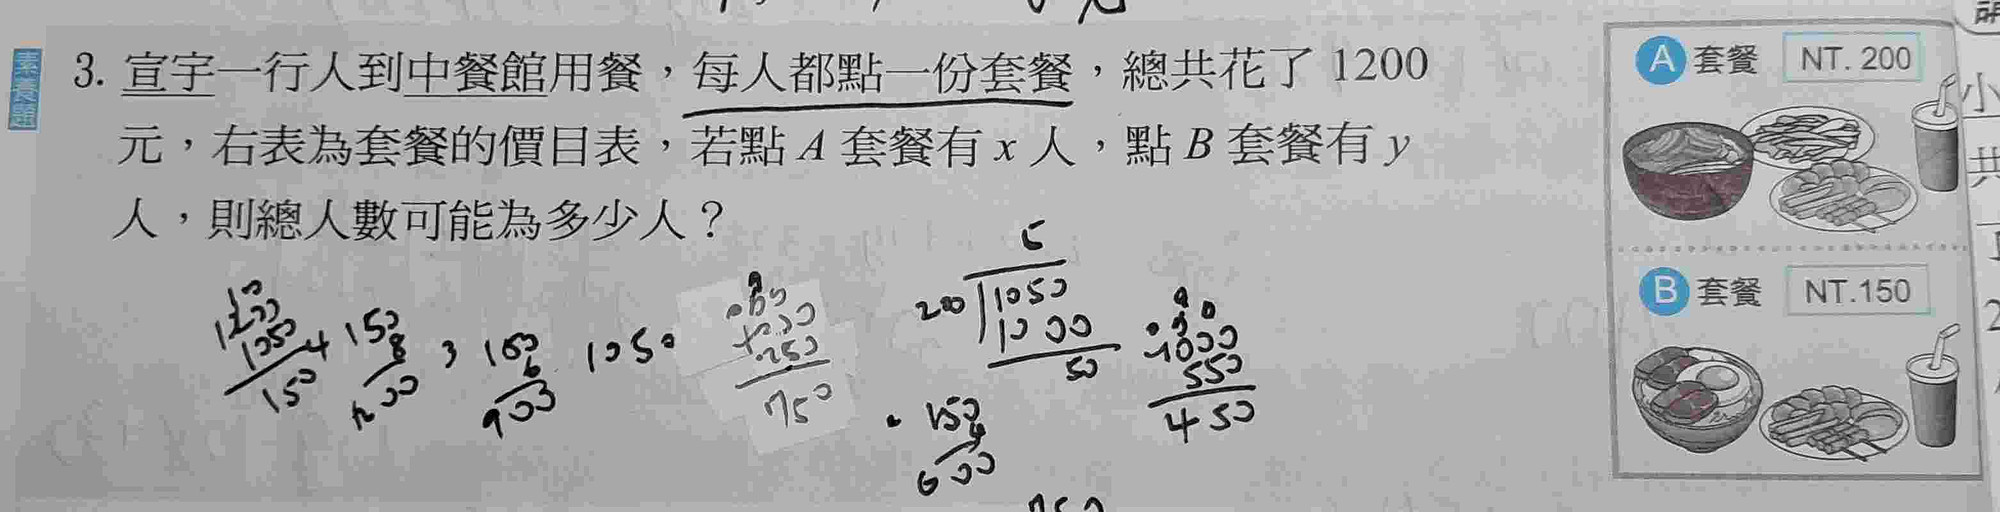 素養題
3. 宣宇一行人到中餐館用餐，每人都點一份套餐，總共花了 1200
元，右表為套餐的價目表，若點 A 套餐有 x 人，點 B 套餐有 y
人，則總人數可能為多少人？
A 套餐 NT. 200
B 套餐 NT.150
1050
150
150
8
3
6
900
1050
250
750
200
1050
1000
50
150
600
1000
550
450
小
共